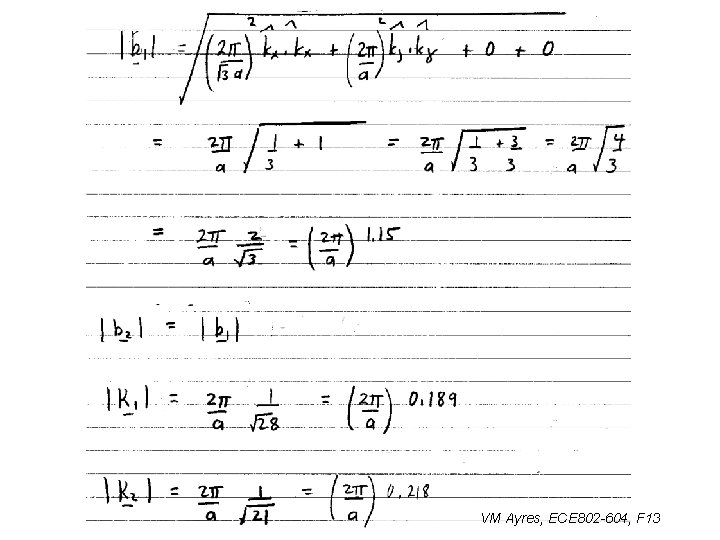 |b₁| = √((2π/√3 a)² k̂ₓ·k̂ₓ + (2π/a)² k̂ᵧ·k̂ᵧ + 0 + 0)
= 2π/a √(1/3 + 1) = 2π/a √(1/3 + 3/3) = 2π/a √(4/3)
= 2π/a 2/√3 = (2π/a) 1.15
|b₂| = |b₁|
|K₁| = 2π/a 1/√28 = (2π/a) 0.189
|K₂| = 2π/a 1/√21 = (2π/a) 0.218
VM Ayres, ECE802-604, F13